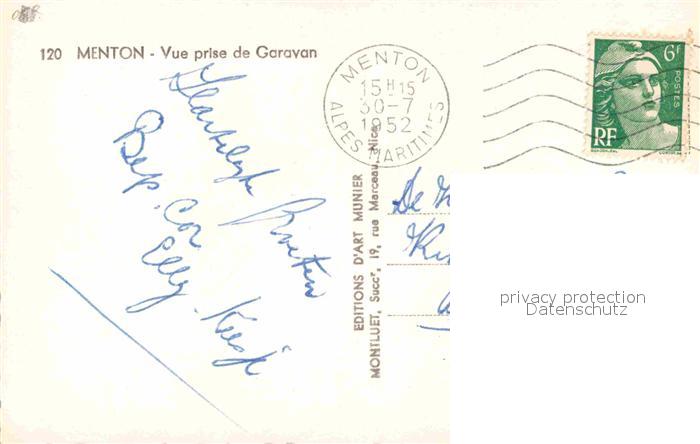 120 MENTON - Vue prise de Garavan
MENTON
15H15
30-7
1952
ALPES MARITIMES
6F
POSTES
RF
Hartelijk Groeten
Bep. Cor
Elly. Keesje
EDITIONS D'ART MUNIER
MONTLUET, Succr, 19, rue Marceau, Nice
De
privacy protection
Datenschutz